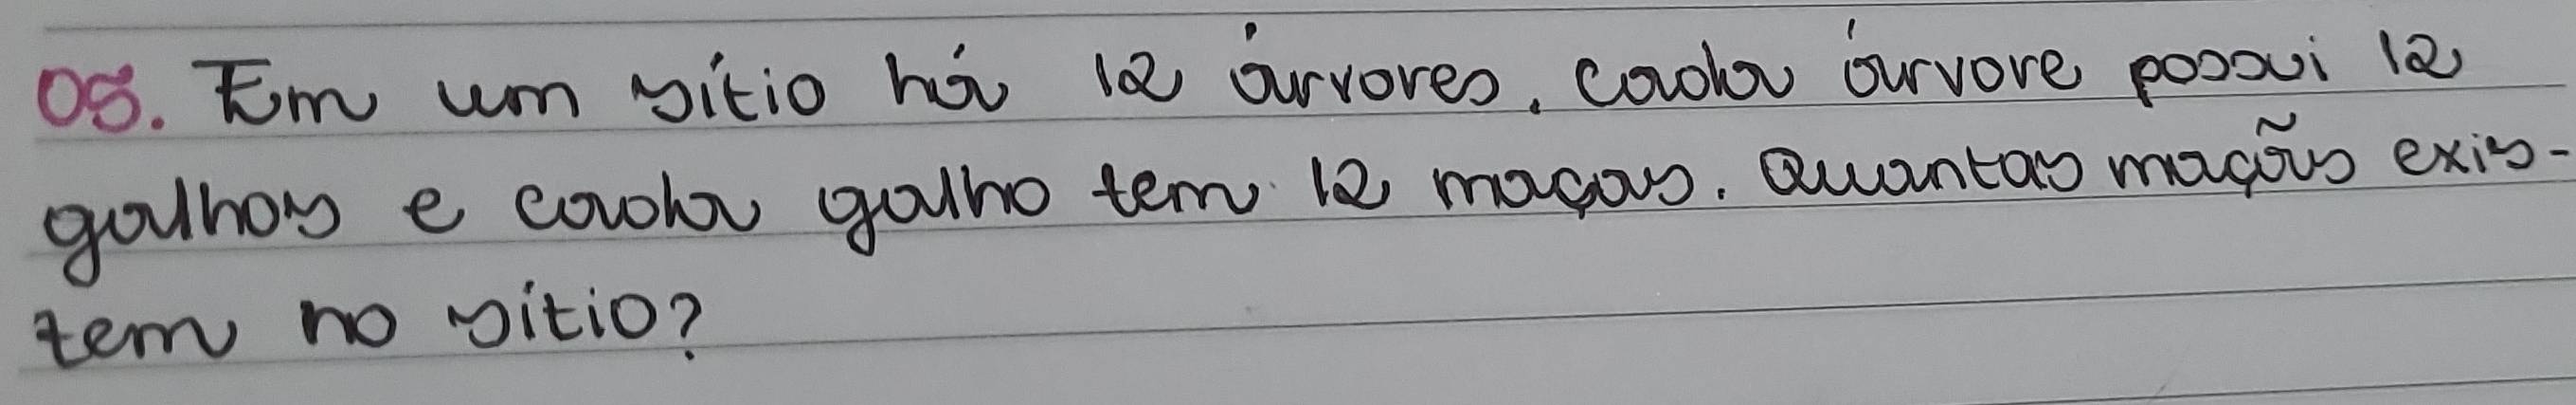 05. Em um sítio há 12 árvores. Cada árvore possui 12
galhos e cada galho tem 12 maças. Quantas maçãs exis-
tem no sítio?